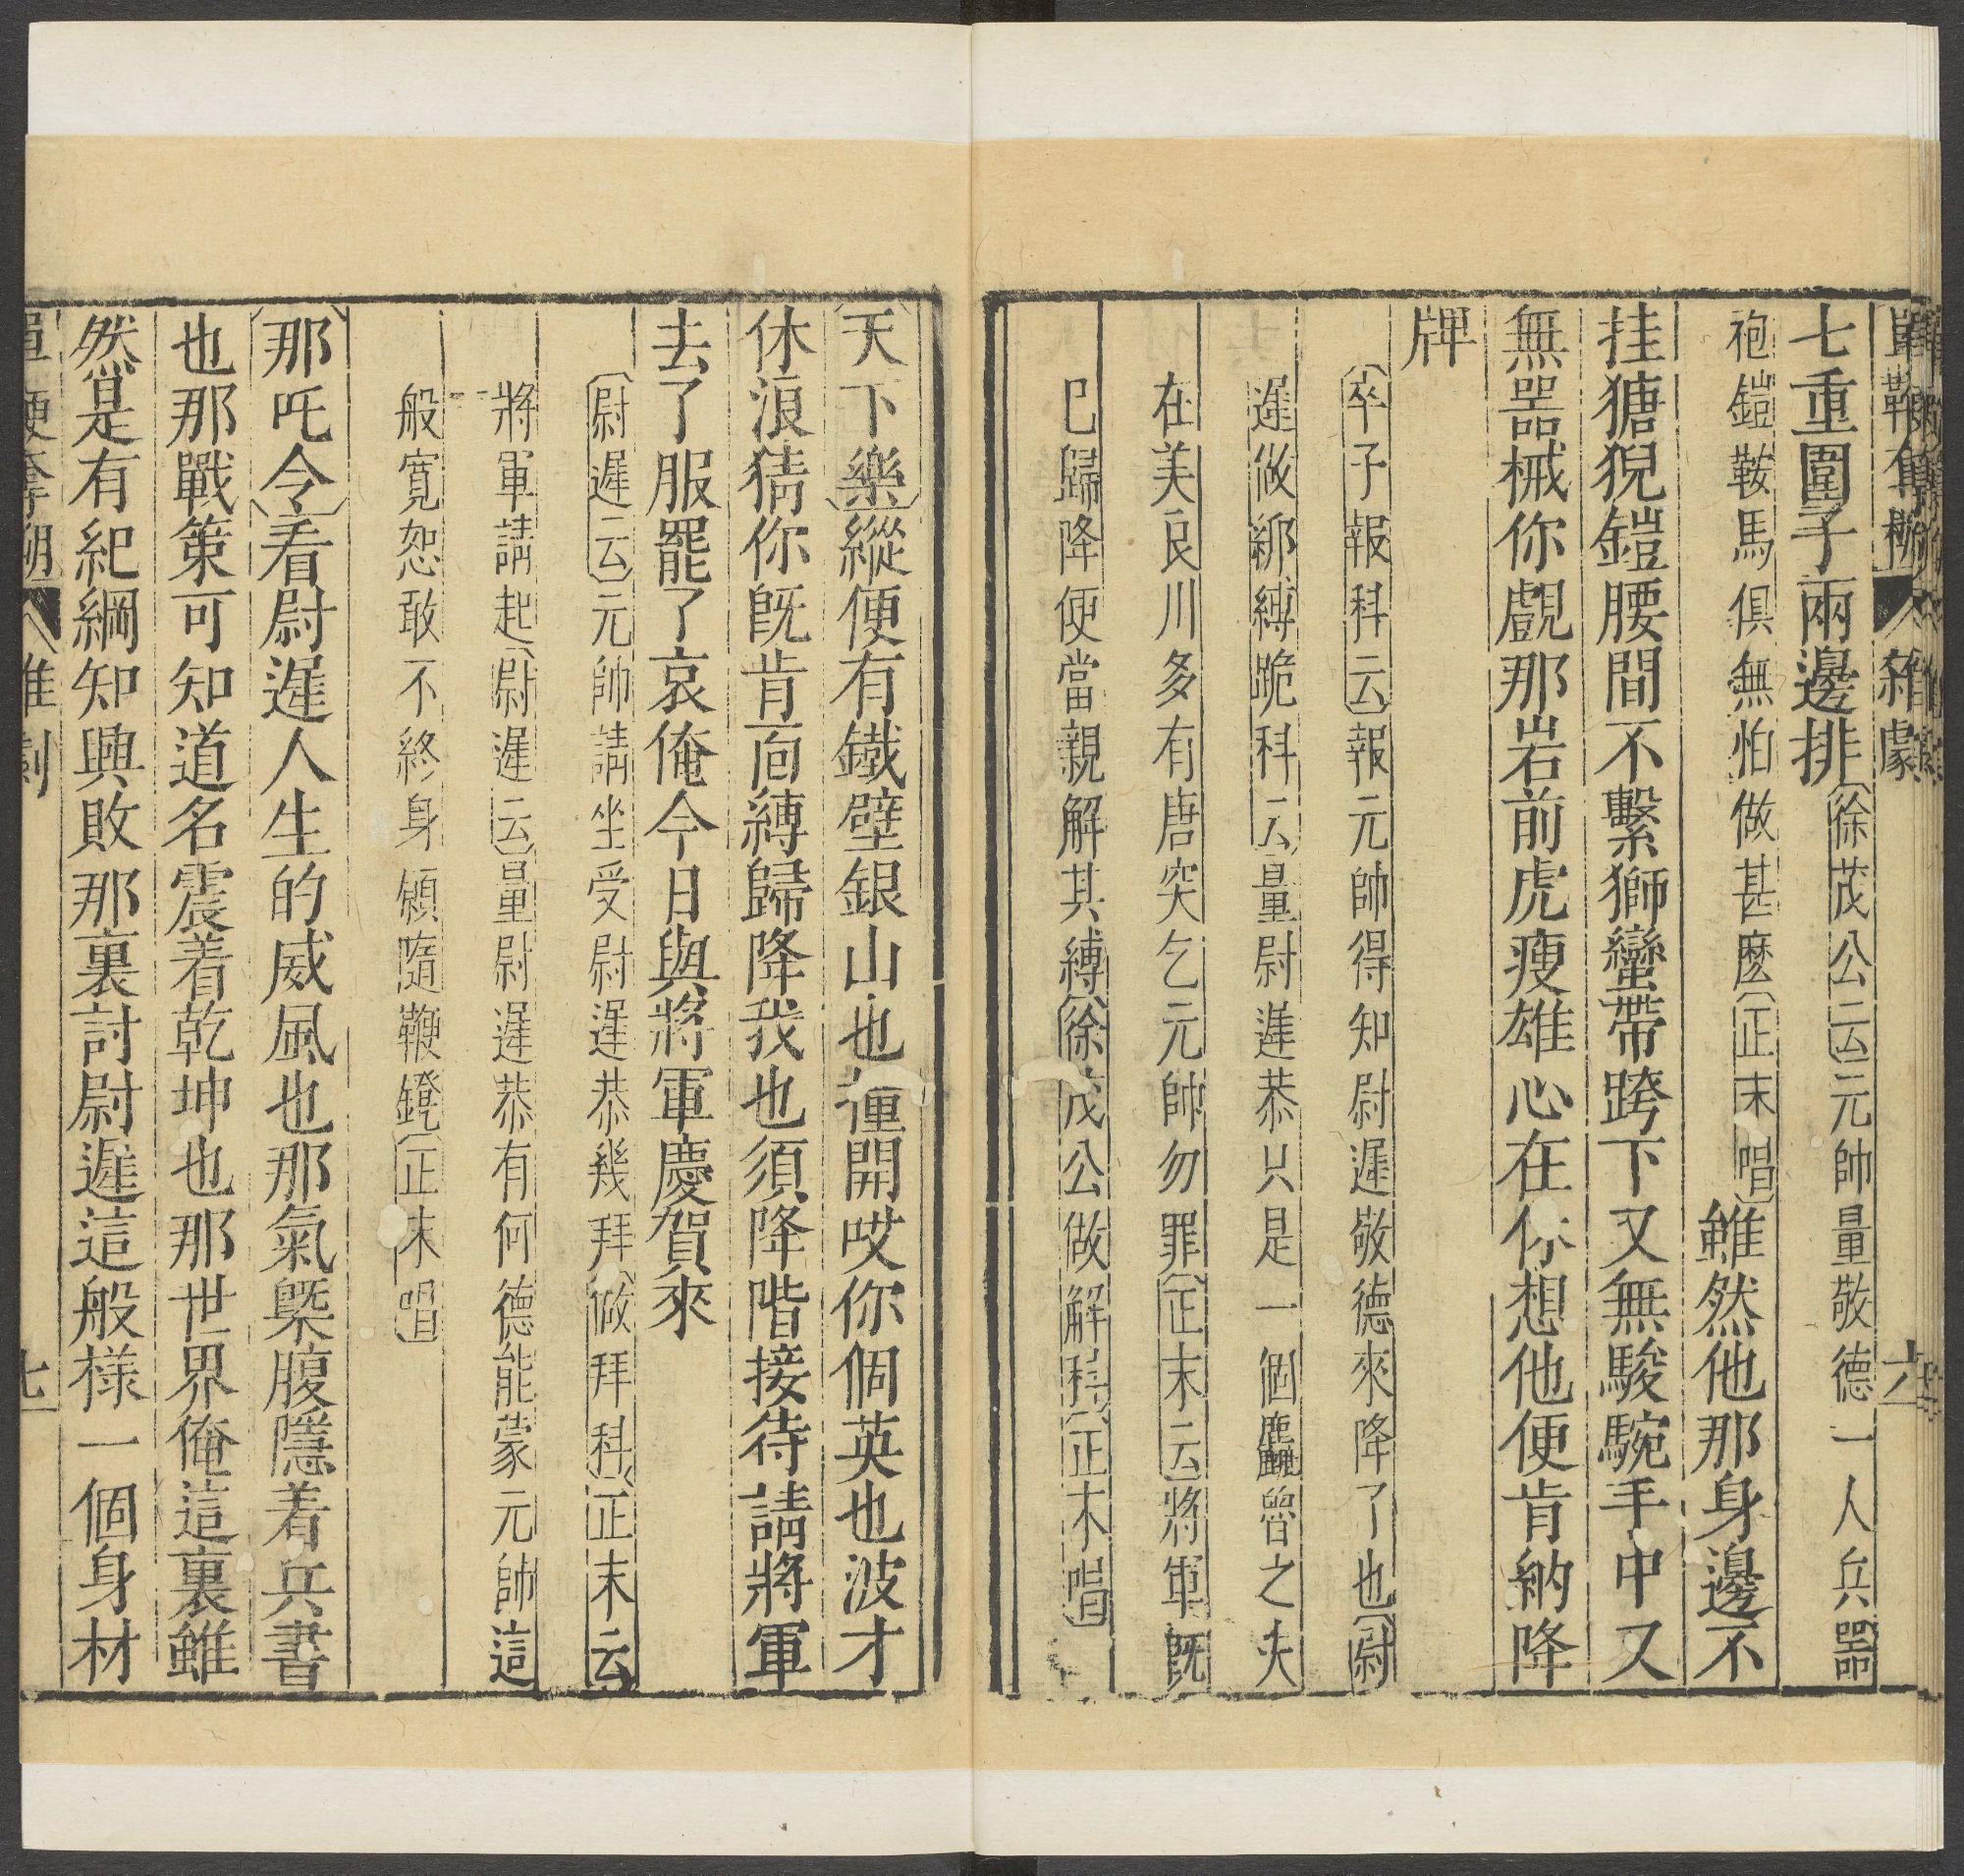 單鞭奪槊 雜劇 六
七重圍子兩邊排〔徐茂公云〕元帥量敬德一人兵器
袍鎧鞍馬俱無怕做甚麽〔正末唱〕雖然他那身邊不
挂猠猊鎧腰間不繫獅蠻帶跨下又無駿騕手中又
無器械你覷那岩前虎瘦雄心在你想他便肯納降
牌
〔卒子報科云〕報元帥得知尉遲敬德來降了也〔尉
遲做綁縛跪科云〕量尉遲恭只是一個麤魯之夫
在美良川多有唐突乞元帥勿罪〔正末云〕將軍旣
已歸降便當親解其縛〔徐茂公做解科〕〔正末唱〕
〔天下樂〕縱便有鐵壁銀山也撞開哎你個英也波才
休浪猜你旣肯面縛歸降我也須降階接待請將軍
去了服罷了哀俺今日與將軍慶賀來
〔尉遲云〕元帥請坐受尉遲恭幾拜〔做拜科〕〔正末云〕
將軍請起〔尉遲云〕量尉遲恭有何德能蒙元帥這
般寬恕敢不終身願隨鞭鐙〔正末唱〕
〔那吒令〕看尉遲人生的威風也那氣槩腹隱着兵書
也那戰策可知道名震着乾坤也那世界俺這裏雖
然是有紀綱知興敗那裏討尉遲這般樣一個身材
單鞭奪槊 雜劇 七